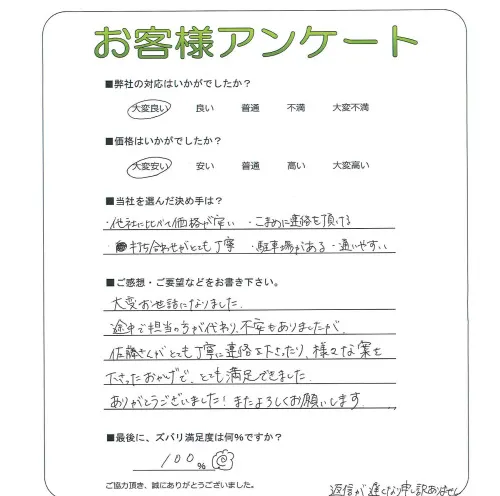 お客様アンケート
■弊社の対応はいかがでしたか？
大変良い 良い 普通 不満 大変不満
■価格はいかがでしたか？
大変安い 安い 普通 高い 大変高い
■当社を選んだ決め手は？
・他社に比べて価格が安い ・こまめに連絡を頂ける
・打ち合わせがとても丁寧 ・駐車場がある・通いやすい
■ご感想・ご要望などをお書き下さい。
大変お世話になりました。
途中で担当の方が代わり、不安もありましたが、
佐藤さんがとても丁寧に連絡を下さったり、様々な案を
下さったおかげで、とても満足できました。
ありがとうございました！またよろしくお願いします。
■最後に、ズバリ満足度は何%ですか？
100%
ご協力頂き、誠にありがとうございました。
返信が遅くなり申し訳ありません